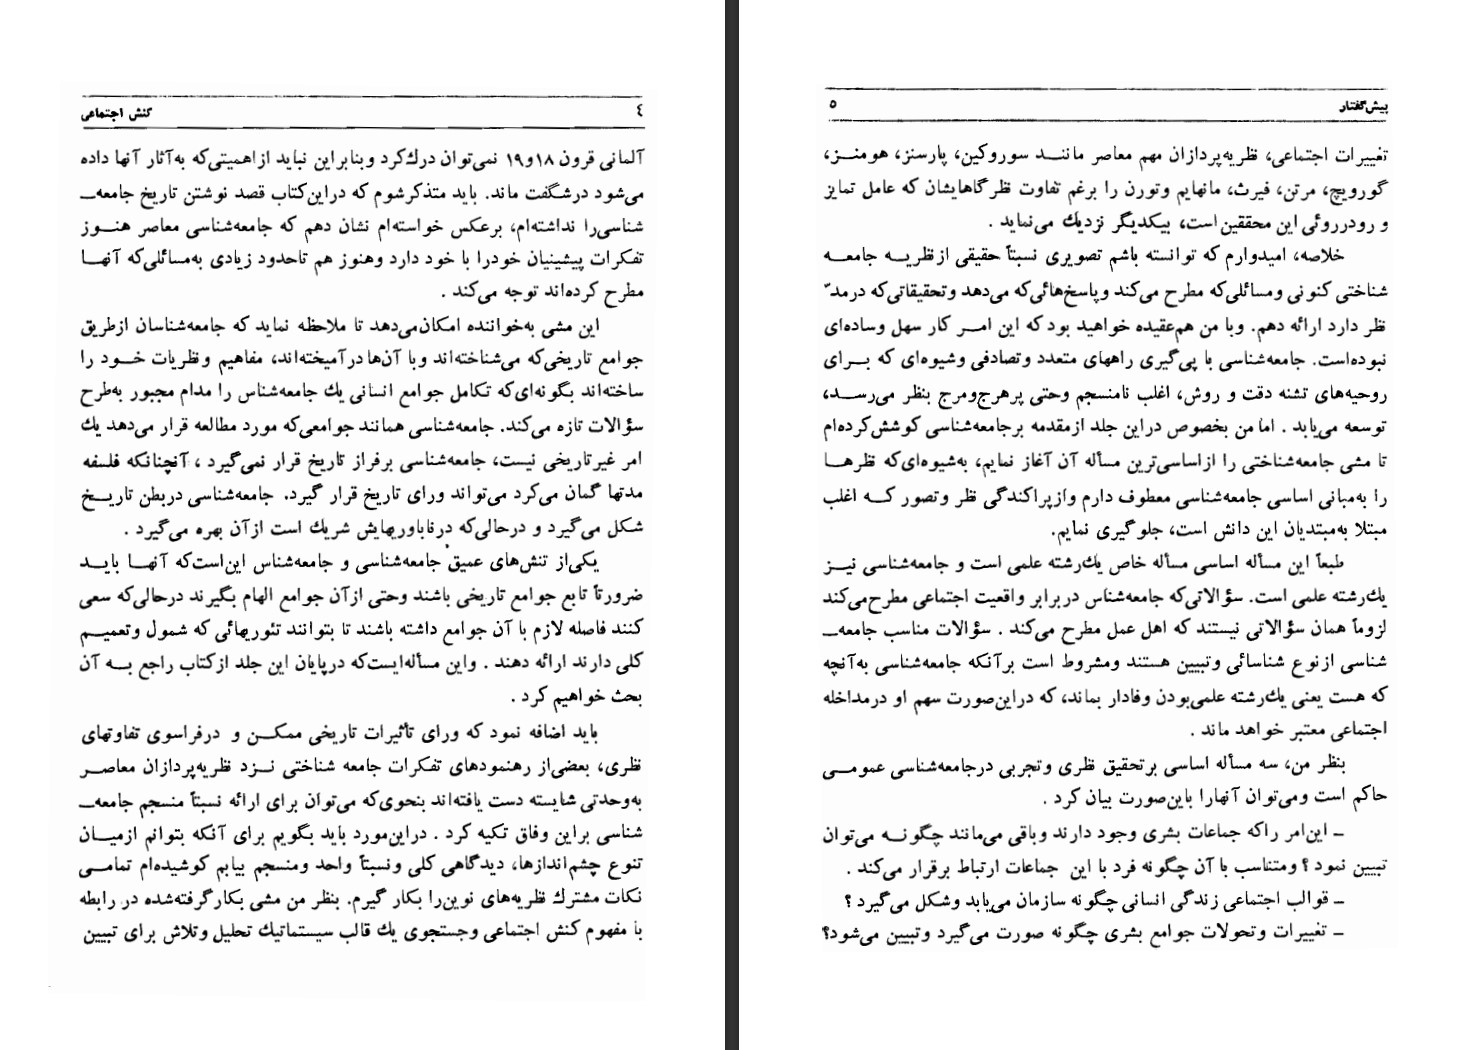 ٤ کنش اجتماعی
آلمانی قرون ۱۸و۱۹ نمی‌توان درك‌کرد وبنابراین نباید ازاهمیتی‌که به‌آثار آنها داده
می‌شود درشگفت ماند. باید متذکرشوم که دراین‌کتاب قصد نوشتن تاریخ جامعه‌ـ
شناسی‌را نداشته‌ام، برعکس خواسته‌ام نشان دهم که جامعه‌شناسی معاصر هنـوز
تفکرات پیشینیان خودرا با خود دارد وهنوز هم تاحدود زیادی به‌مسائلی‌که آنهـا
مطرح کرده‌اند توجه می‌کند .
این مشی به‌خواننده امکان‌می‌دهد تا ملاحظه نماید که جامعه‌شناسان ازطریق
جوامع تاریخی‌که می‌شناخته‌اند وبا آن‌ها درآمیخته‌اند، مفاهیم ونظریات خـود را
ساخته‌اند بگونه‌ای‌که تکامل جوامع انسانی يك جامعه‌شناس را مدام مجبور به‌طرح
سؤالات تازه می‌کند. جامعه‌شناسی همانند جوامعی‌که مورد مطالعه قرار می‌دهد يك
امر غیرتاریخی نیست، جامعه‌شناسی برفراز تاریخ قرار نمی‌گیرد ، آنچنانکه فلسفه
مدتها گمان می‌کرد می‌تواند ورای تاریخ قرار گیرد. جامعه‌شناسی دربطن تاریـخ
شکل می‌گیرد و درحالی‌که درناباوریهایش شریك است ازآن بهره می‌گیرد .
یکی‌از تنش‌های عمیق جامعه‌شناسی و جامعه‌شناس این‌است‌که آنهـا بایـد
ضرورتاً تابع جوامع تاریخی باشند وحتی ازآن جوامع الهام بگیرند درحالی‌که سعی
کنند فاصله لازم با آن جوامع داشته باشند تا بتوانند تئوریهائی که شمول وتعمیـم
کلی دارند ارائه دهند . واین مسأله‌ایست‌که درپایان این جلد ازکتاب راجع بـه آن
بحث خواهیم کرد .
باید اضافه نمود که ورای تأثیرات تاریخی ممکـن و درفراسوی تفاوتهای
نظری، بعضی‌از رهنمودهای تفکرات جامعه شناختی نـزد نظریه‌پردازان معاصـر
به‌وحدتی شایسته دست یافته‌اند بنحوی‌که می‌توان برای ارائه نسبتاً منسجم جامعه‌ـ
شناسی براین وفاق تکیه کرد . دراین‌مورد باید بگویم برای آنکه بتوانم ازمیـان
تنوع چشم‌اندازها، دیدگاهی کلی ونسبتاً واحد ومنسجم بیابم کوشیده‌ام تمامـی
نکات مشترك نظریه‌های نوین‌را بکار گیرم. بنظر من مشی بکارگرفته‌شده در رابطه
با مفهوم کنش اجتماعی وجستجوی يك قالب سیستماتيك تحلیل وتلاش برای تبیین
پیش‌گفتار ٥
تغییرات اجتماعی، نظریه‌پردازان مهم معاصر ماننـد سوروکین، پارسنز، هومنـز،
گورویچ، مرتن، فیرث، مانهایم وتورن را برغم تفاوت نظرگاهایشان که عامل تمایز
و رودرروئی این محققین است، بیکدیگر نزدیك می‌نماید .
خلاصه، امیدوارم که توانسته باشم تصویری نسبتاً حقیقی ازنظریـه جامعـه
شناختی کنونی ومسائلی‌که مطرح می‌کند وپاسخ‌هائی‌که می‌دهد وتحقیقاتی‌که درمدّ
نظر دارد ارائه دهم. وبا من هم‌عقیده خواهید بود که این امـر کار سهل وساده‌ای
نبوده‌است. جامعه‌شناسی با پی‌گیری راههای متعدد وتصادفی وشیوه‌ای که بـرای
روحیه‌های تشنه دقت و روش، اغلب نامنسجم وحتی پرهرج‌ومرج بنظر می‌رسـد،
توسعه می‌یابد . اما من بخصوص دراین جلد ازمقدمه برجامعه‌شناسی کوشش‌کرده‌ام
تا مشی جامعه‌شناختی را ازاساسی‌ترین مسأله آن آغاز نمایم، به‌شیوه‌ای‌که نظرهـا
را به‌مبانی اساسی جامعه‌شناسی معطوف دارم وازپراکندگی نظر وتصور کـه اغلب
مبتلا به‌مبتدیان این دانش است، جلوگیری نمایم.
طبعاً این مسأله اساسی مسأله خاص يك‌رشته علمی است و جامعه‌شناسی نیـز
يك‌رشته علمی است. سؤالاتی‌که جامعه‌شناس دربرابر واقعیت اجتماعی مطرح‌می‌کند
لزوماً همان سؤالاتی نیستند که اهل عمل مطرح می‌کند . سؤالات مناسب جامعه‌ـ
شناسی ازنوع شناسائی وتبیین هستند ومشروط است برآنکه جامعه‌شناسی به‌آنچه
که هست یعنی يك‌رشته علمی‌بودن وفادار بماند، که دراین‌صورت سهم او درمداخله
اجتماعی معتبر خواهد ماند .
بنظر من، سه مسأله اساسی برتحقیق نظری وتجربی درجامعه‌شناسی عمومـی
حاکم است ومی‌توان آنهارا باین‌صورت بیان کرد .
ـ این‌امر راکه جماعات بشری وجود دارند وباقی می‌مانند چگونـه می‌توان
تبیین نمود ؟ ومتناسب با آن چگونه فرد با این جماعات ارتباط برقرار می‌کند .
ـ قوالب اجتماعی زندگی انسانی چگونه سازمان می‌یابد وشکل می‌گیرد ؟
ـ تغییرات وتحولات جوامع بشری چگونه صورت می‌گیرد وتبیین می‌شود؟